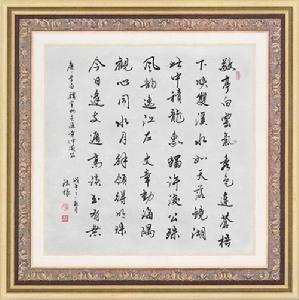 敬亭白雲氣秀色連蒼梧
下映雙溪水如天落鏡湖
此中積龍象獨許濬公殊
風韻逸江左文章動海隅
觀心同水月解領得明珠
今日逢支遁高談出有無
唐李白贈宣州靈源寺仲濬公